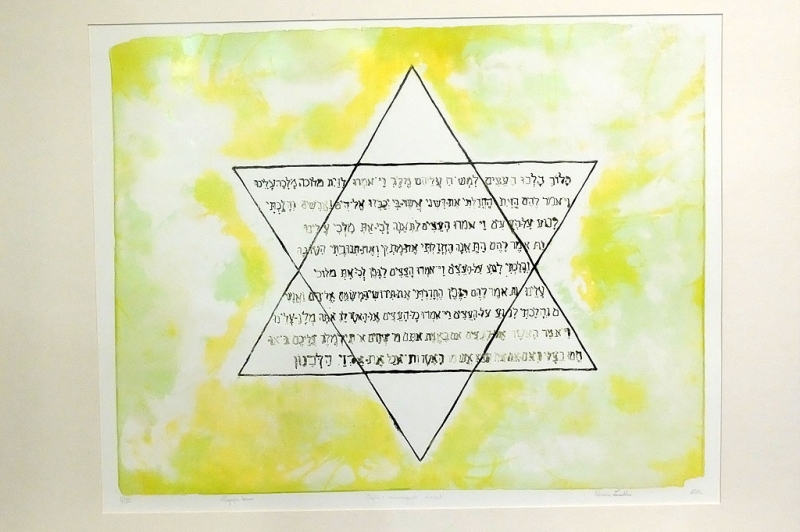 הלוך הלכו העצים למשח עליהם מלך ויאמרו לזית מלוכה מלכה עלינו
ויאמר להם הזית החדלתי את-דשני אשר-בי יכבדו אלהים ואנשים והלכתי
לנוע על-העצים ויאמרו העצים לתאנה לכי-את מלכי עלינו
ותאמר להם התאנה החדלתי את-מתקי ואת-תנובתי הטובה
והלכתי לנוע על-העצים ויאמרו העצים לגפן לכי-את מלוכי
עלינו ותאמר להם הגפן החדלתי את-תירושי המשמח אלהים ואנשי
ם והלכתי לנוע על-העצים ויאמרו כל-העצים אל-האטד לך אתה מלך-עלינו
ויאמר האטד אל-העצים אם באמת אתם משחים אתי למלך עליכם באו
חסו בצלי ואם-אין תצא אש מן האטד ותאכל את-ארזי הלבנון